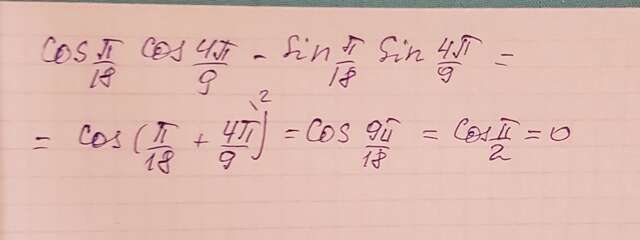 cos π/18 cos 4π/9 - sin π/18 sin 4π/9 =
= cos (π/18 + 4π/9 \2) = cos 9π/18 = cos π/2 = 0